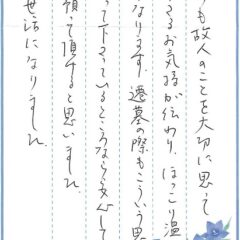 も故人のことを大切に思って
るお気持が伝わり、ほっこり温
なります。遷墓の際もこういう思
って下さっているところなら安心して
頼って頂けると思いました。
世話になりました。